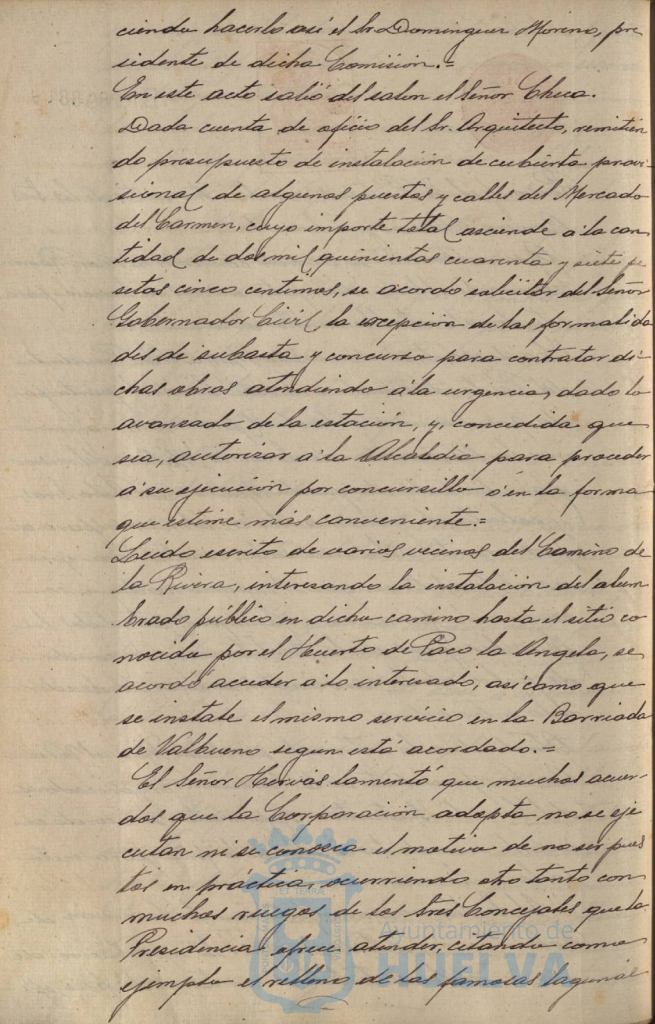 ciendo hacerlo así el Sr. Dominguez Moreno, pre
sidente de dicha Comisión.=
En este acto salió del salon el Señor Checa.
Dada cuenta de oficio del Sr. Arquitecto, remitien
do presupuesto de instalación de cubierta provi-
sional de algunos puestos y calles del Mercado
del Carmen, cuyo importe total asciende á la can
tidad de dos mil quinientas cuarenta y siete pe
setas cinco centimos, se acordó solicitar del Señor
Gobernador Civil la excepción de las formalida
des de subasta y concurso para contratar di-
chas obras atendiendo á la urgencia, dado lo
avanzado de la estación, y, concedida que
sea, autorizar á la Alcaldia para proceder
á su ejecución por concursillo ó en la forma
que estime más conveniente.=
Leido escrito de varios vecinos del Camino de
la Rivera, interesando la instalación del alum
brado público en dicho camino hasta el sitio co
nocido por el Huerto de Paco la Angela, se
acordó acceder á lo interesado, asi como que
se instale el mismo servicio en la Barriada
de Valbueno segun está acordado.=
El Señor Hervás lamentó que muchos acuer-
dos que la Corporación adopta no se eje
cutan ni se conozca el motivo de no ser pues
tos en práctica, ocurriendo otro tanto con
muchos ruegos de los Sres Concejales que la
Presidencia ofrece atender, citando como
ejemplo el relleno de las famosas lagunas
Ayuntamiento de
HUELVA